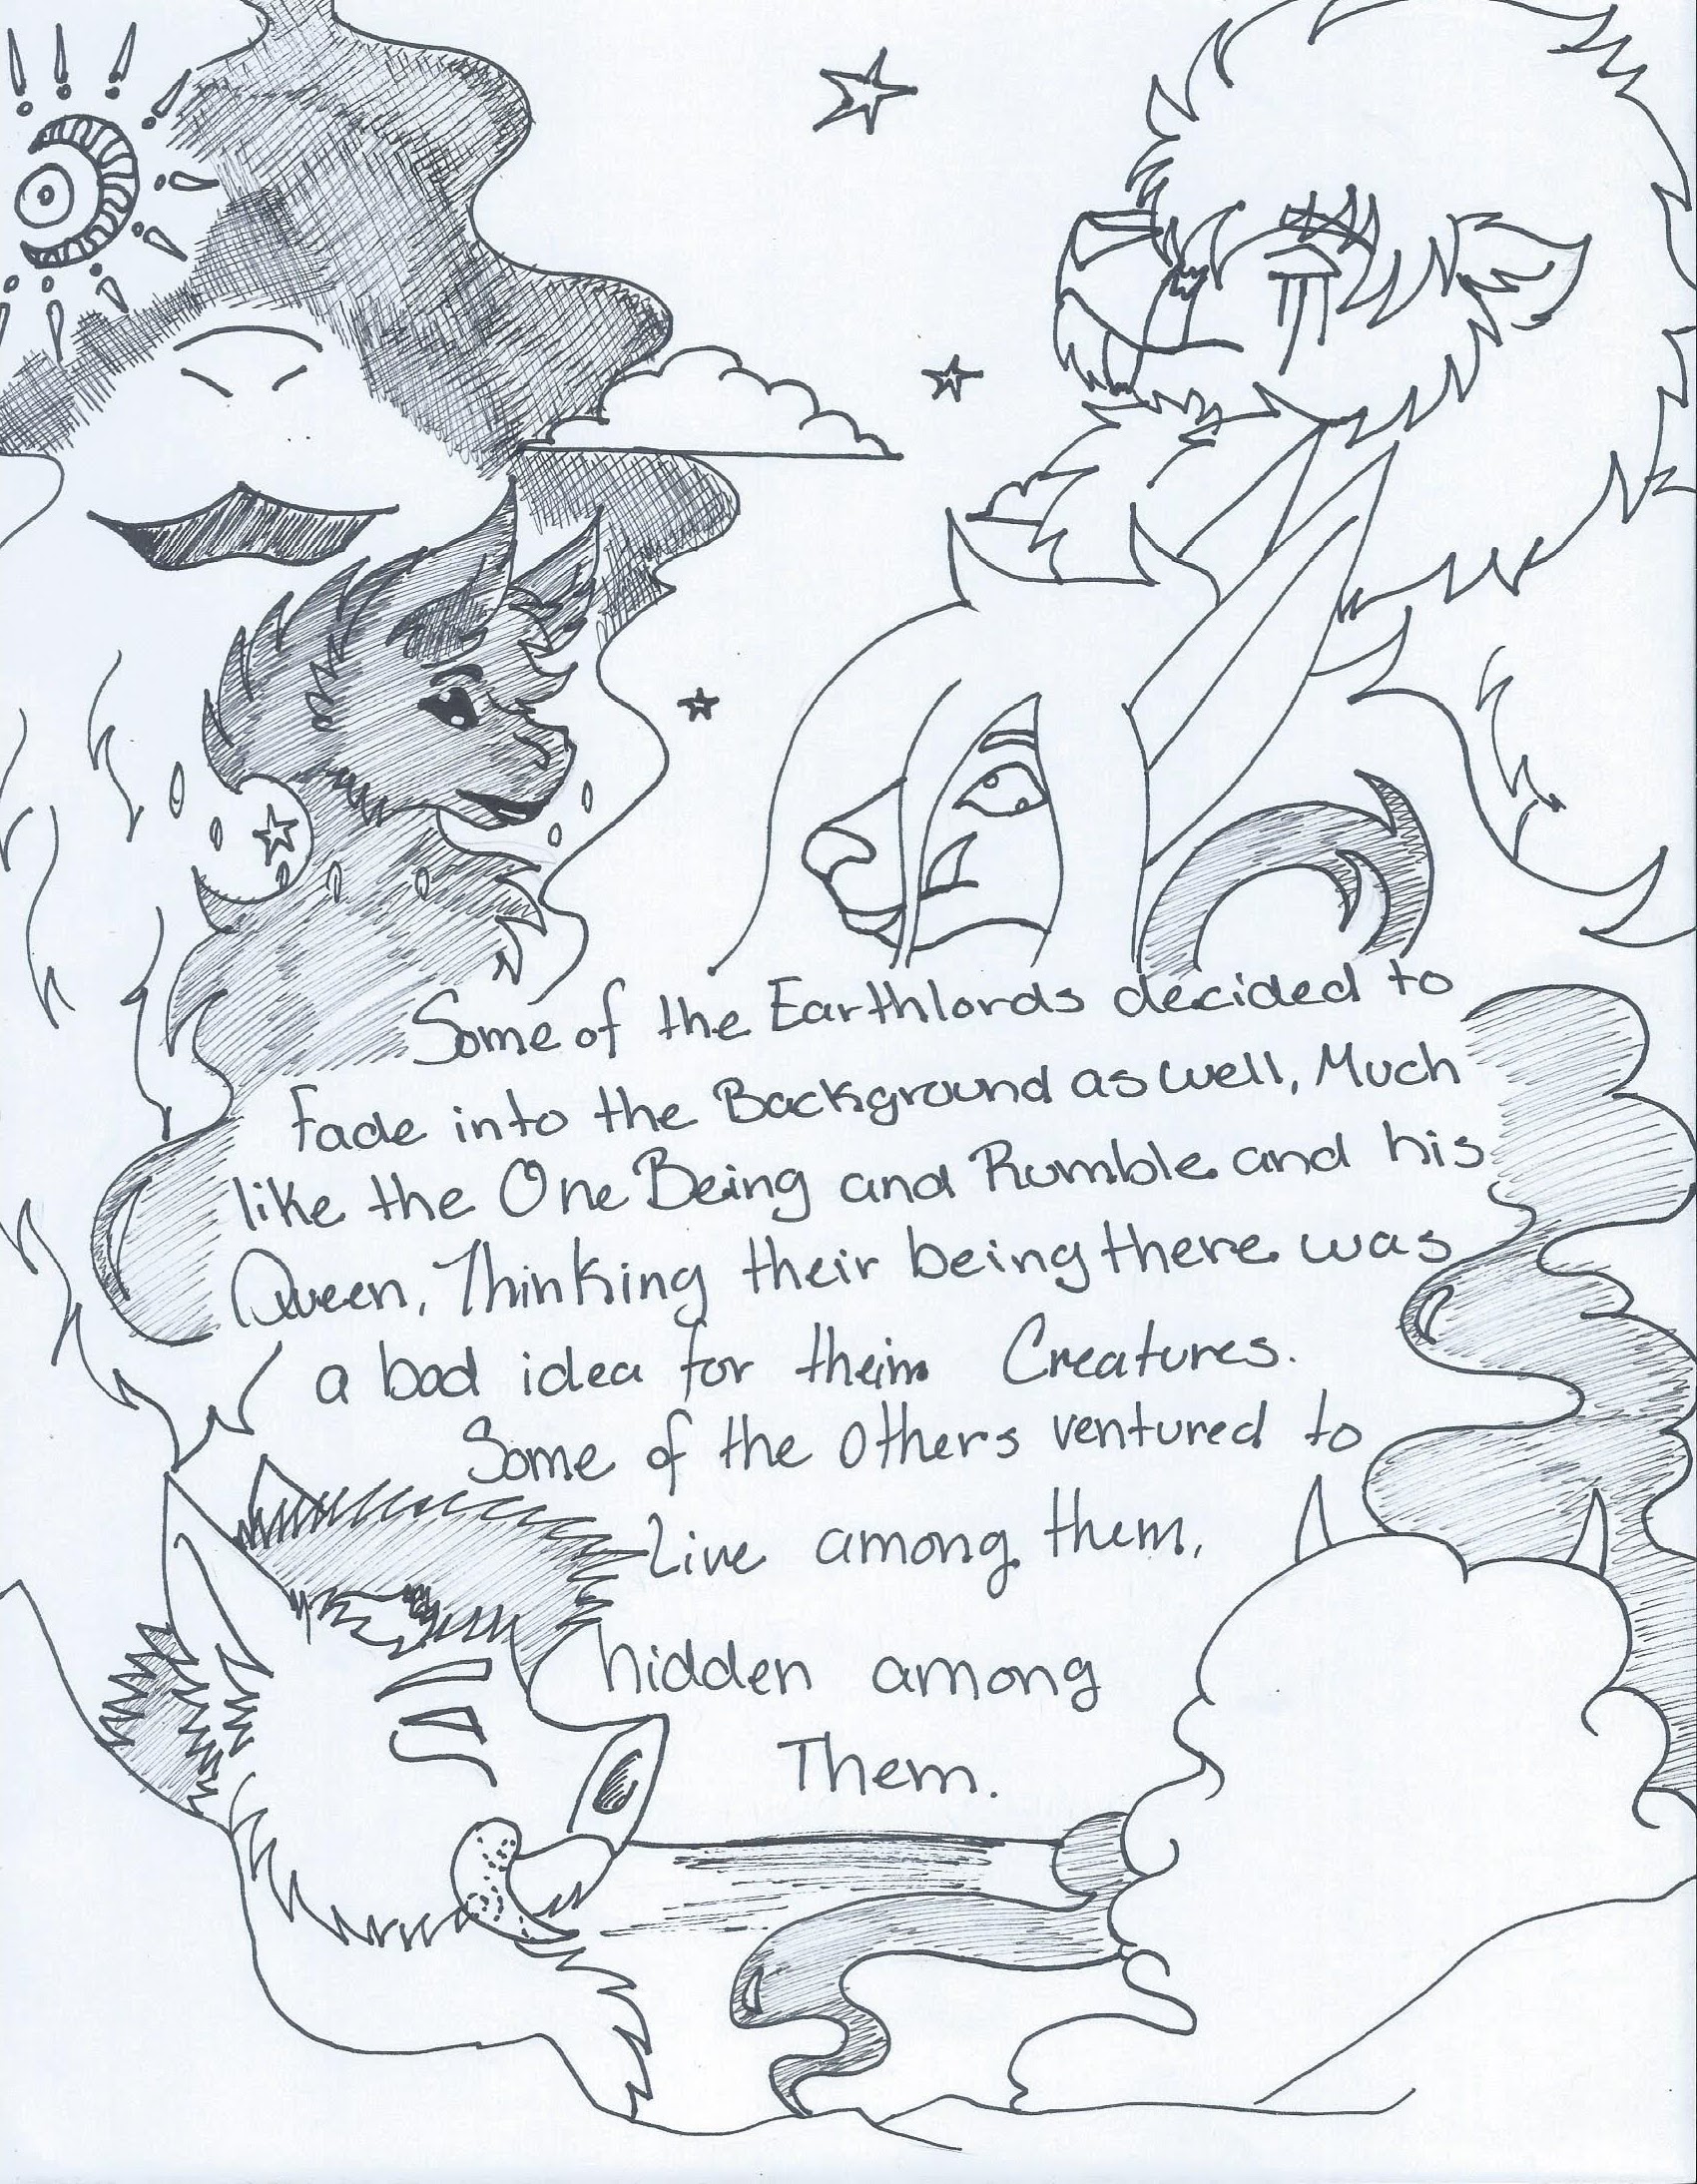 Some of the Earthlords decided to
Fade into the Background as well, Much
like the One Being and Rumble and his
Queen, Thinking their being there was
a bad idea for their Creatures.
Some of the Others ventured to
Live among them,
hidden among
Them.